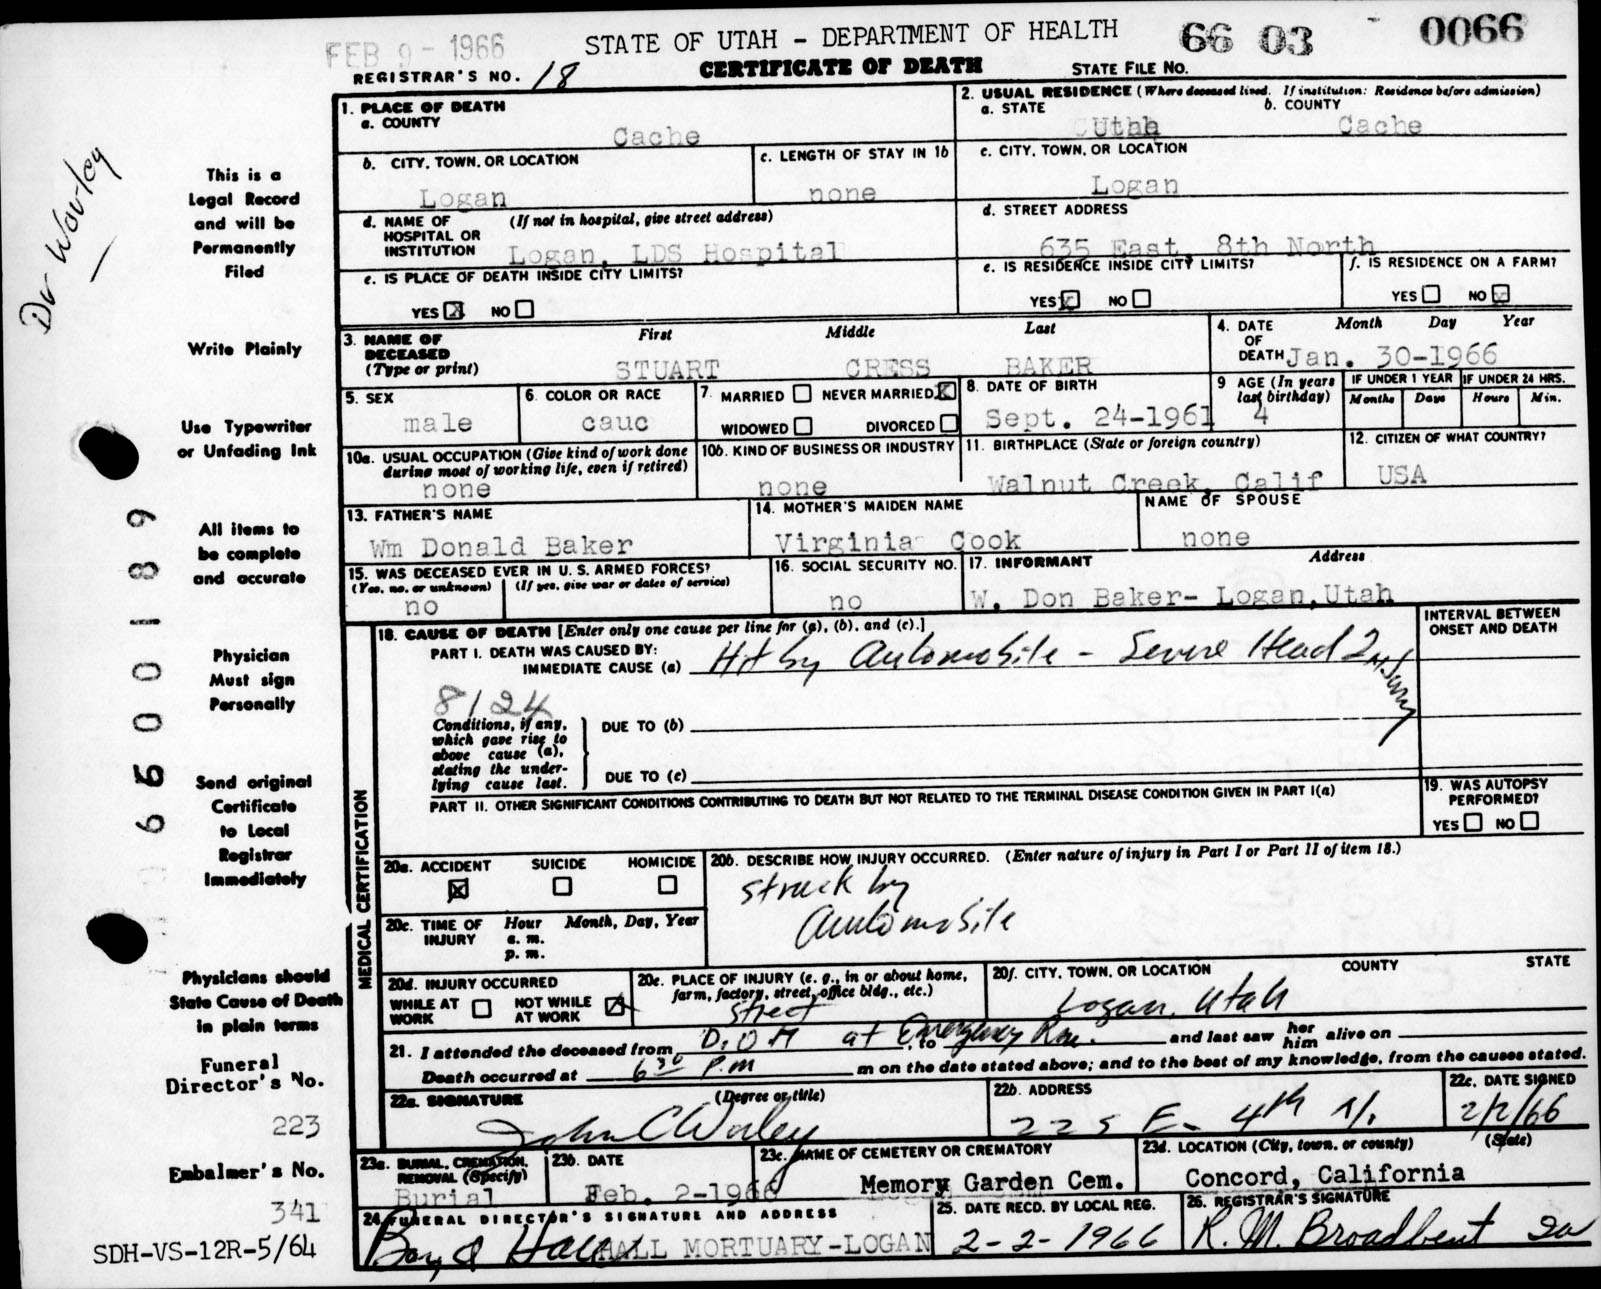 FEB 9 - 1966
STATE OF UTAH - DEPARTMENT OF HEALTH
66 03 0066
REGISTRAR'S NO. 18
CERTIFICATE OF DEATH
STATE FILE NO.
Dr Worley
This is a
Legal Record
and will be
Permanently
Filed
Write Plainly
Use Typewriter
or Unfading Ink
All items to
be complete
and accurate
Physician
Must sign
Personally
Send original
Certificate
to Local
Registrar
Immediately
Physicians should
State Cause of Death
in plain terms
Funeral
Director's No.
223
Embalmer's No.
341
SDH-VS-12R-5/64
66 00189
1. PLACE OF DEATH
a. COUNTY
Cache
2. USUAL RESIDENCE (Where deceased lived. If institution: Residence before admission)
a. STATE
Utah
b. COUNTY
Cache
b. CITY, TOWN, OR LOCATION
Logan
c. LENGTH OF STAY IN 1b
none
c. CITY, TOWN, OR LOCATION
Logan
d. NAME OF HOSPITAL OR INSTITUTION
(If not in hospital, give street address)
Logan, LDS Hospital
d. STREET ADDRESS
635 East, 8th North
e. IS PLACE OF DEATH INSIDE CITY LIMITS?
YES X NO
e. IS RESIDENCE INSIDE CITY LIMITS?
YES X NO
f. IS RESIDENCE ON A FARM?
YES NO X
3. NAME OF DECEASED (Type or print)
First Middle Last
STUART CRESS BAKER
4. DATE OF DEATH
Month Day Year
Jan. 30-1966
5. SEX
male
6. COLOR OR RACE
cauc
7. MARRIED NEVER MARRIED X
WIDOWED DIVORCED
8. DATE OF BIRTH
Sept. 24-1961
9 AGE (In years last birthday)
4
IF UNDER 1 YEAR
Months Days
IF UNDER 24 HRS.
Hours Min.
10a. USUAL OCCUPATION (Give kind of work done during most of working life, even if retired)
none
10b. KIND OF BUSINESS OR INDUSTRY
none
11. BIRTHPLACE (State or foreign country)
Walnut Creek, Calif
12. CITIZEN OF WHAT COUNTRY?
USA
13. FATHER'S NAME
Wm Donald Baker
14. MOTHER'S MAIDEN NAME
Virginia Cook
NAME OF SPOUSE
none
15. WAS DECEASED EVER IN U. S. ARMED FORCES?
(Yes, no, or unknown) (If yes, give war or dates of service)
no
16. SOCIAL SECURITY NO.
no
17. INFORMANT Address
W. Don Baker- Logan, Utah
MEDICAL CERTIFICATION
18. CAUSE OF DEATH [Enter only one cause per line for (a), (b), and (c).]
PART I. DEATH WAS CAUSED BY:
IMMEDIATE CAUSE (a) Hit by Automobile - Severe Head Injury
INTERVAL BETWEEN ONSET AND DEATH
8124
Conditions, if any, which gave rise to above cause (a), stating the underlying cause last.
DUE TO (b)
DUE TO (c)
PART II. OTHER SIGNIFICANT CONDITIONS CONTRIBUTING TO DEATH BUT NOT RELATED TO THE TERMINAL DISEASE CONDITION GIVEN IN PART I(a)
19. WAS AUTOPSY PERFORMED?
YES NO
20a. ACCIDENT SUICIDE HOMICIDE
X
20b. DESCRIBE HOW INJURY OCCURRED. (Enter nature of injury in Part I or Part II of item 18.)
struck by
Automobile
20c. TIME OF INJURY
Hour Month, Day, Year
a. m.
p. m.
20d. INJURY OCCURRED
WHILE AT WORK NOT WHILE AT WORK X
20e. PLACE OF INJURY (e. g., in or about home, farm, factory, street, office bldg., etc.)
Street
20f. CITY, TOWN, OR LOCATION COUNTY STATE
Logan, Utah
21. I attended the deceased from D.O.A at, to Emergency Rm. and last saw her him alive on
Death occurred at 6 30 P.M m on the date stated above; and to the best of my knowledge, from the causes stated.
22a. SIGNATURE (Degree or title)
John C Worley
22b. ADDRESS
225 E. 4th N.
22c. DATE SIGNED
2/2/66
23a. BURIAL, CREMATION, REMOVAL (Specify)
Burial
23b. DATE
Feb. 2-1966
23c. NAME OF CEMETERY OR CREMATORY
Memory Garden Cem.
23d. LOCATION (City, town, or county) (State)
Concord, California
24. FUNERAL DIRECTOR'S SIGNATURE AND ADDRESS
Boyd Hall HALL MORTUARY-LOGAN
25. DATE RECD. BY LOCAL REG.
2-2-1966
26. REGISTRAR'S SIGNATURE
R. M. Broadbent